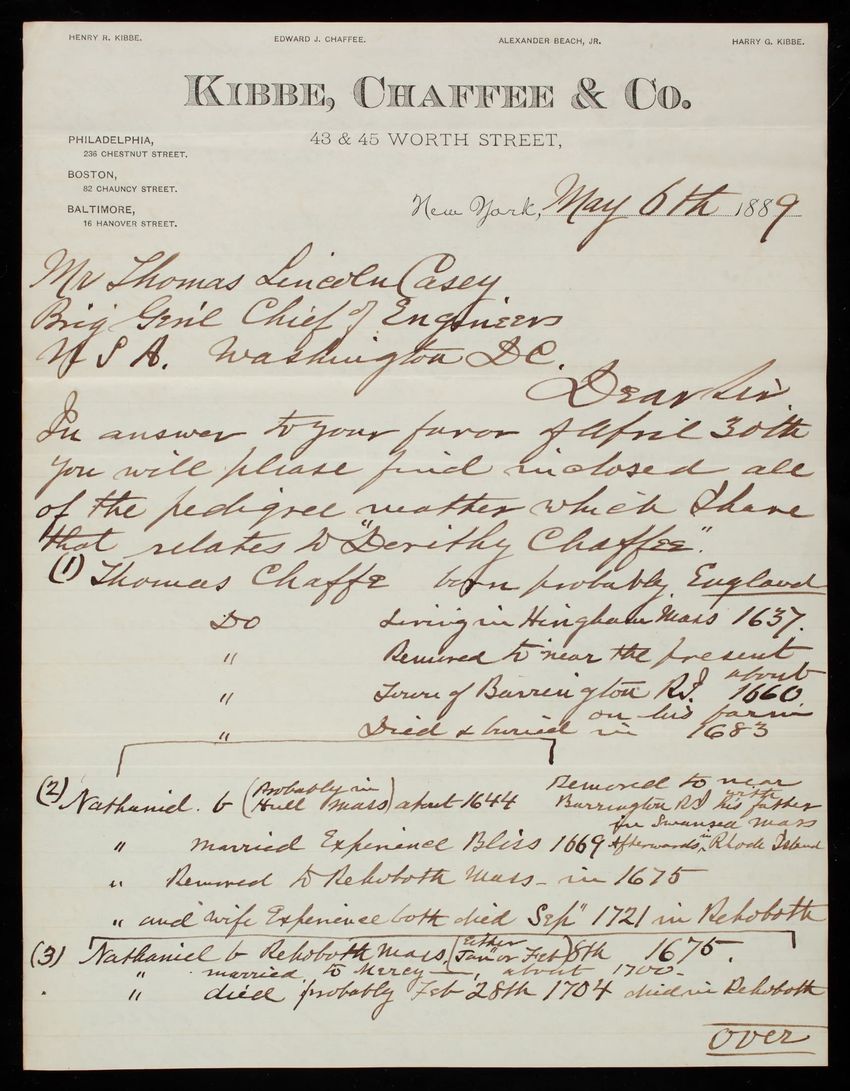 HENRY R. KIBBE. EDWARD J. CHAFFEE. ALEXANDER BEACH, JR. HARRY G. KIBBE.
KIBBE, CHAFFEE & CO.
43 & 45 WORTH STREET,
PHILADELPHIA,
236 CHESTNUT STREET.
BOSTON,
82 CHAUNCY STREET.
BALTIMORE,
16 HANOVER STREET.
New York, May 6th 1889
Mr Thomas Lincoln Casey
Brig Gen'l Chief of Engineers
U S A. Washington D C.
Dear Sir
In answer to your favor of April 30th
you will please find inclosed all
of the pedigree matter which I have
that relates to "Dorithy Chaffee".
(1) Thomas Chaffe born probably England
Do Living in Hingham Mass 1637.
" Removed to near the present
Town of Barrington R.I. about 1660
" Died & buried on his farm in 1683
(2) Nathaniel b (Probably in Hull Mass) about 1644 Removed to near
Barrington RI with his father
in Swansea Mass
" married Experience Bliss 1669 Afterwards in Rhode Island
" Removed to Rehoboth Mass - in 1675
" and wife Experience both died Sep" 1721 in Rehoboth
(3) Nathaniel b Rehoboth Mass, (Either Jan" or Feb) 8th 1675.
" married to Mercy —, about 1700-
" died probably Feb 28th 1704 died in Rehoboth
over